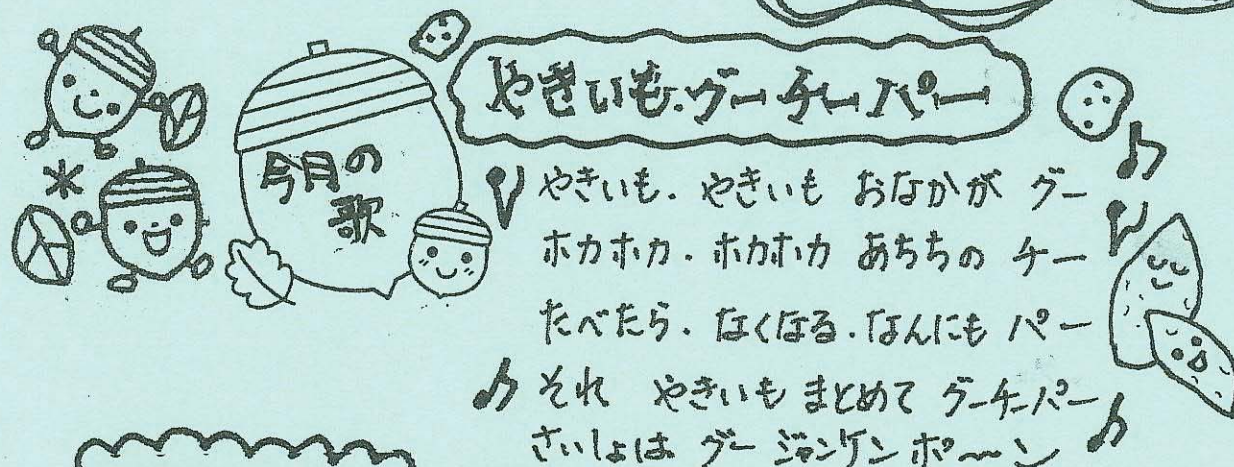 今月の
歌
やきいも.グーチーパー
やきいも.やきいも おなかが グー
ホカホカ.ホカホカ あちちの チー
たべたら.なくなる.なんにも パー
それ やきいも まとめて グーチーパー
さいしょは グー ジャンケン ポ〜ン